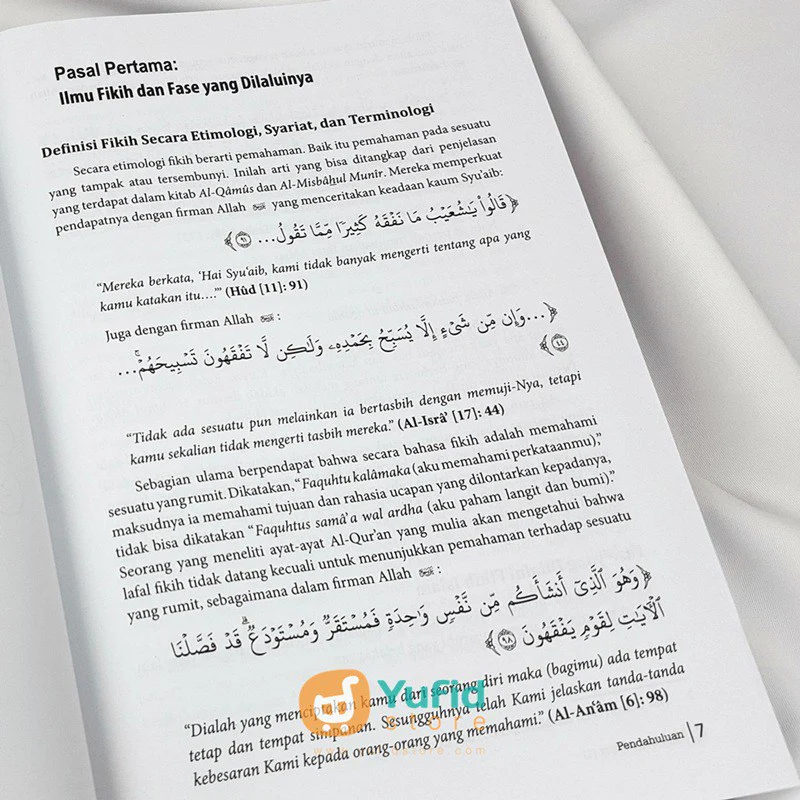 Pasal Pertama:
Ilmu Fikih dan Fase yang Dilaluinya
Definisi Fikih Secara Etimologi, Syariat, dan Terminologi
Secara etimologi fikih berarti pemahaman. Baik itu pemahaman pada sesuatu
yang tampak atau tersembunyi. Inilah arti yang bisa ditangkap dari penjelasan
yang terdapat dalam kitab Al-Qâmûs dan Al-Misbâhul Munîr. Mereka memperkuat
pendapatnya dengan firman Allah ﷻ yang menceritakan keadaan kaum Syu'aib:
﴿ قَالُوا۟ يَـٰشُعَيْبُ مَا نَفْقَهُ كَثِيرًا مِّمَّا تَقُولُ... ٩١ ﴾
"Mereka berkata, 'Hai Syu'aib, kami tidak banyak mengerti tentang apa yang
kamu katakan itu....'" (Hûd [11]: 91)
Juga dengan firman Allah ﷻ:
﴿ ...وَإِن مِّن شَىْءٍ إِلَّا يُسَبِّحُ بِحَمْدِهِۦ وَلَـٰكِن لَّا تَفْقَهُونَ تَسْبِيحَهُمْ ۗ...
٤٤ ﴾
"Tidak ada sesuatu pun melainkan ia bertasbih dengan memuji-Nya, tetapi
kamu sekalian tidak mengerti tasbih mereka." (Al-Isrâ' [17]: 44)
Sebagian ulama berpendapat bahwa secara bahasa fikih adalah memahami
sesuatu yang rumit. Dikatakan, "Faquhtu kalâmaka (aku memahami perkataanmu),"
maksudnya ia memahami tujuan dan rahasia ucapan yang dilontarkan kepadanya,
tidak bisa dikatakan "Faquhtus samâ'a wal ardha (aku paham langit dan bumi)."
Seorang yang meneliti ayat-ayat Al-Qur'an yang mulia akan mengetahui bahwa
lafal fikih tidak datang kecuali untuk menunjukkan pemahaman terhadap sesuatu
yang rumit, sebagaimana dalam firman Allah ﷻ:
﴿ وَهُوَ ٱلَّذِىٓ أَنشَأَكُم مِّن نَّفْسٍ وَٰحِدَةٍ فَمُسْتَقَرٌّ وَمُسْتَوْدَعٌ ۗ قَدْ فَصَّلْنَا
ٱلْـَٔايَـٰتِ لِقَوْمٍ يَفْقَهُونَ ٩٨ ﴾
"Dialah yang menciptakan kamu dari seorang diri maka (bagimu) ada tempat
tetap dan tempat simpanan. Sesungguhnya telah Kami jelaskan tanda-tanda
kebesaran Kami kepada orang-orang yang memahami." (Al-An'âm [6]: 98)
Yufid
store
Pendahuluan | 7